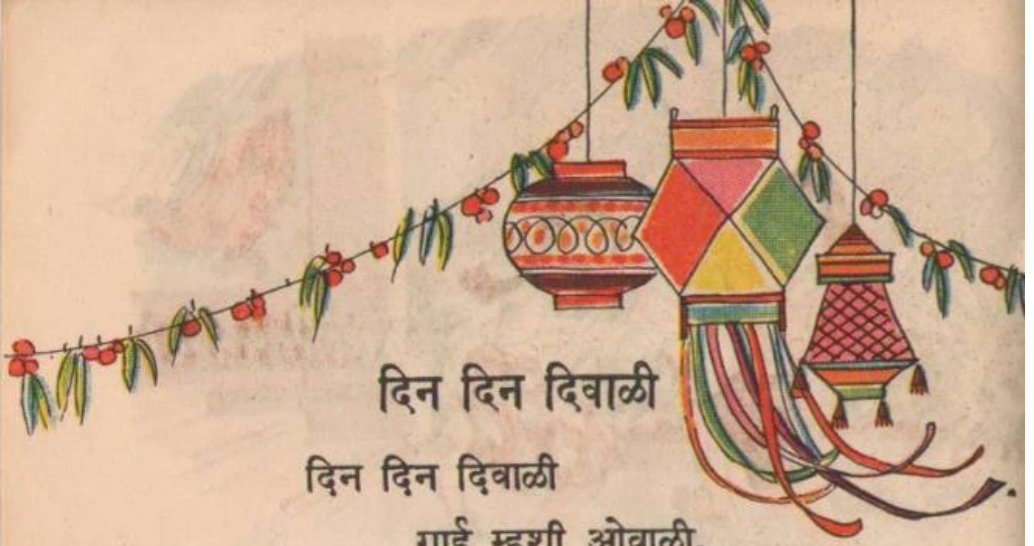 दिन दिन दिवाळी
दिन दिन दिवाळी
गाई म्हशी ओवाळी